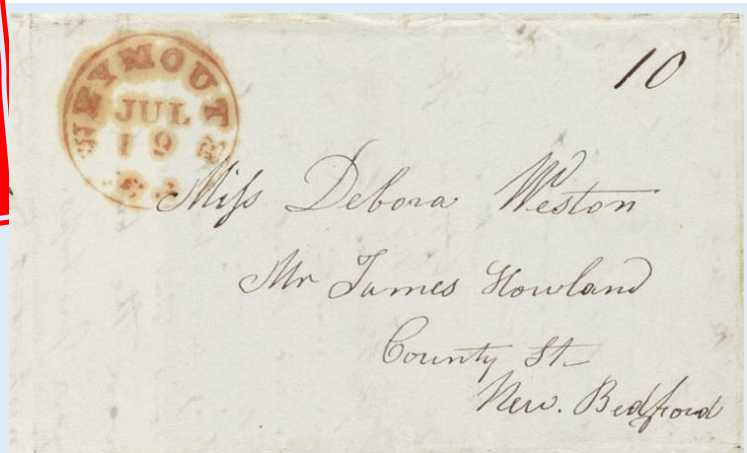 WEYMOUTH
JUL
19
10
Miss Debora Weston
Mr James Howland
County St
New. Bedford